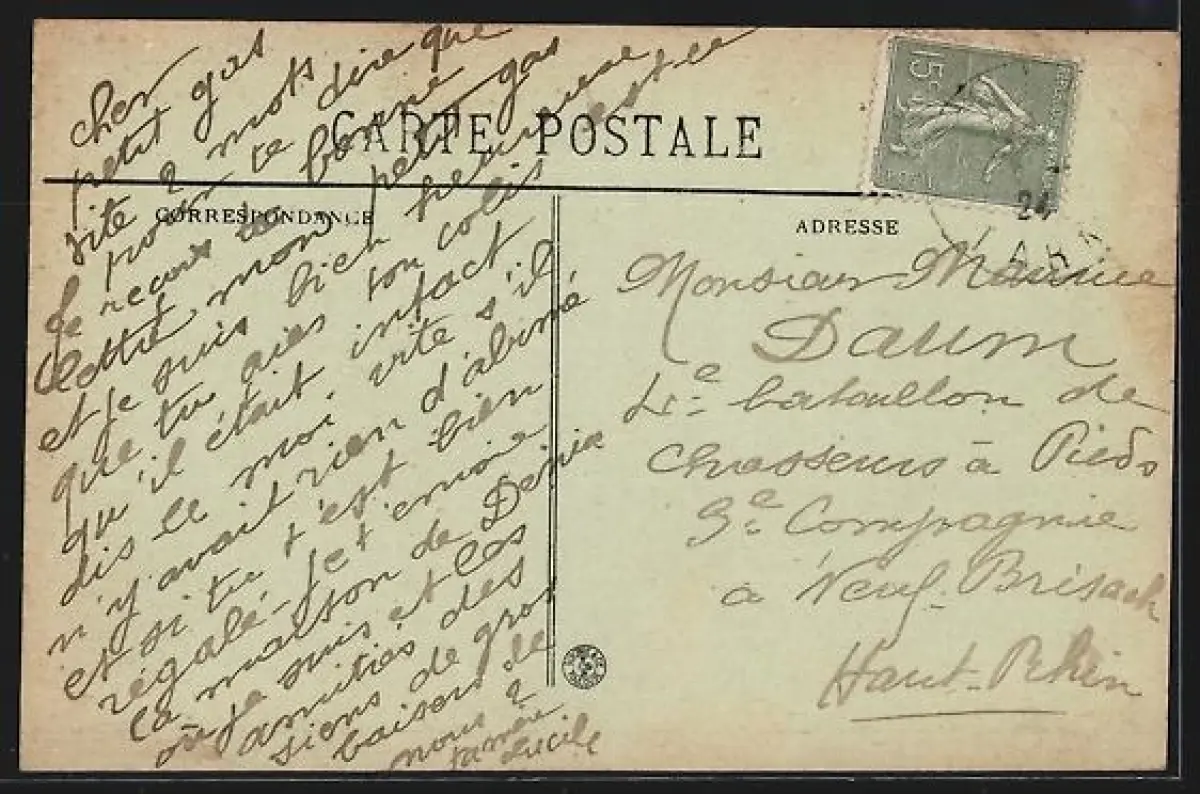 CARTE POSTALE
CORRESPONDANCE
ADRESSE
15c
24
cher
petit gas
vite 2 mots
pour te dire que
Je recois ta bonne
lettre, mon petit gas
et je suis bien heureuse
que tu aies ton colis
qu'il était intact
dis le moi vite s'il
n'y avait rien d'abimé
et si tu t'est bien
régalé - Je t'envoie
la maison de Denise
où je suis et les
amitiés des
siens de gros
baisers de
nous 2
ta mère
Lucile
Monsieur Maurice
Daum
4e bataillon de
Chasseurs à Pieds
3e Compagnie
à Neuf-Brisach
Haut-Rhin